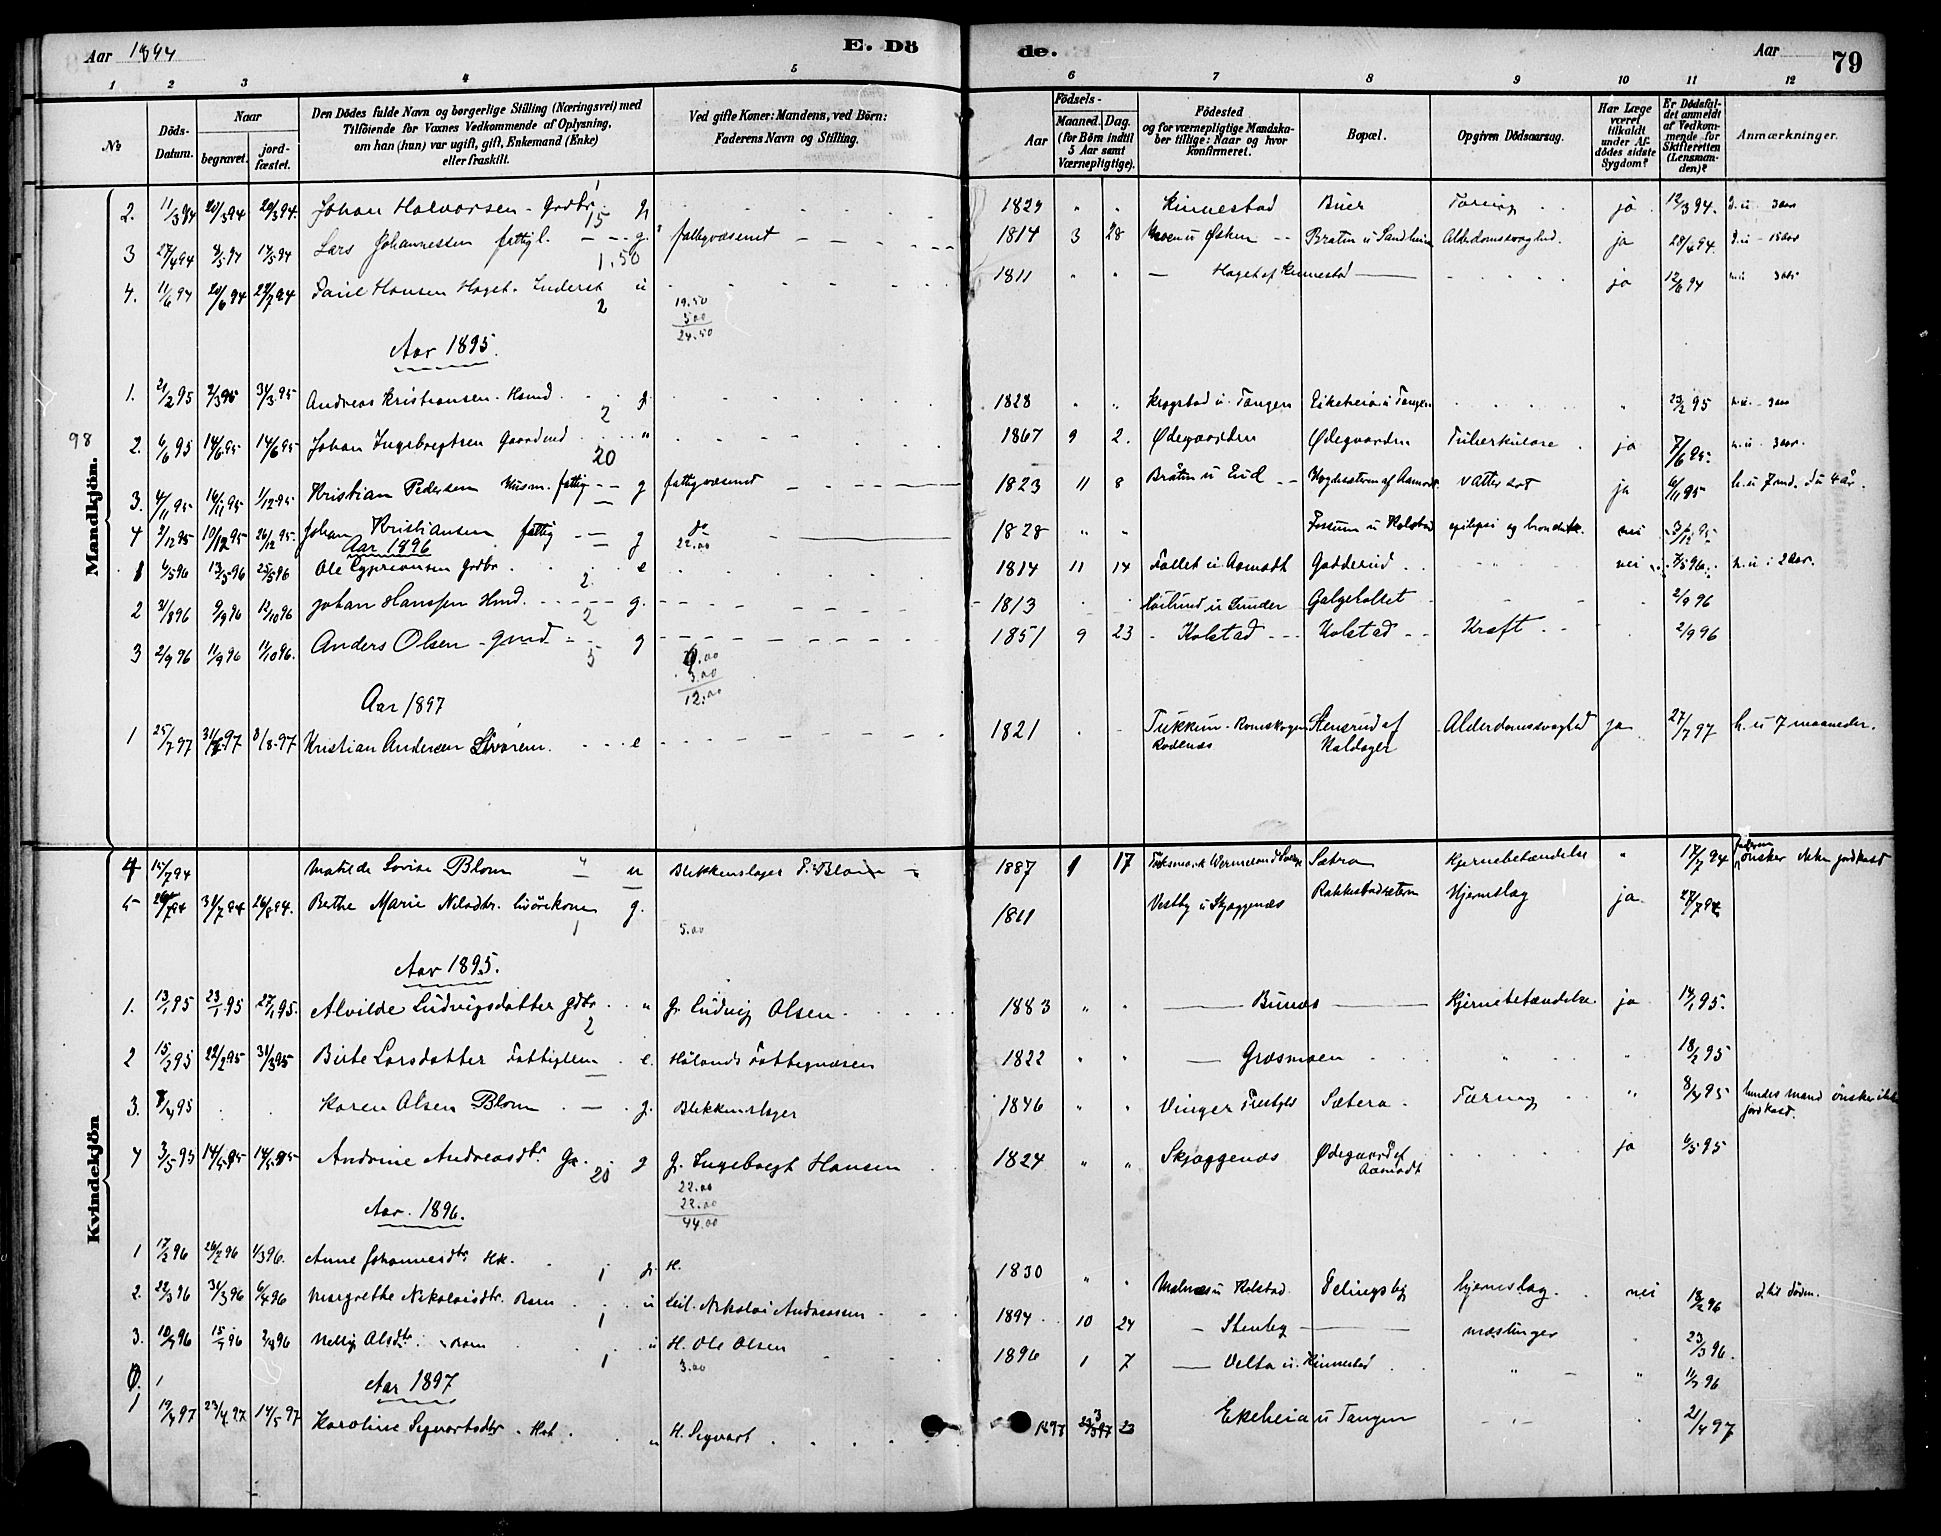 Aar 1894 E. Dö de. Aar 79
1 2 3 4 5 6 7 8 9 10 11 12
No
Döds-Datum.
Naar
begravet.
jord-fæstet.
Den Dödes fulde Navn og borgerlige Stilling (Næringsvei) med
Tilföiende for Voxnes Vedkommende af Oplysning,
om han (hun) var ugift, gift, Enkemand (Enke)
eller fraskilt.
Ved gifte Koner: Mandens, ved Börn:
Faderens Navn og Stilling.
Födsels-
Aar
Maaned. Dag.
(for Börn indtil
5 Aar samt
Værnepligtige).
Födested
og for værnepligtige Mandska-
ber tillige: Naar og hvor
konfirmeret.
Bopæl.
Opgiven Dödsaarsag.
Har Læge
været
tilkaldt
under Af-
dödes sidste
Sygdom?
Er Dödsfal-
det anmeldt
af Vedkom-
mende for
Skifteretten
(Lensman-
den)?
Anmærkninger.
Mandkjön.
2. 11/3 94 20/3 94 29/3 94. Johan Halvorsen - Grdbr. 15 g 1829 " " Kinnestad Buer Tæring jo 12/3 94. 3 aar
3 27/4 94 8/5 94 17/5 94 Lars Johannessen fattigl. g. 1.50 fattigvæsenet 1814 3 28 Bråten u Sandheim Alderdomssvaghed. ja 28/4 94.
4. 11/6 94 20/6 94 29/7 94 Paul Hansen Haget. Inderst 2 u 1811 " " Haget af Kinnestad jo 12/6 94 3 aar
19.50
5.00
24.50
Aar 1895.
1. 21/2 95 9/3 95 31/3 95 Andreas Kristiansen. Hsmd 2 g. 1828 " " Krogstad u. Tangen Eikeheia u Tangen " 23/2 95 3 aar
98
2. 6/6 95 14/6 95 14/6 95 Johan Ingebregtsen Gaardmd " 20 1867 9 2. Ødegaarden Ødegaarden Tuberkulose ja 7/6 95. h.u. 3 aar.
3. 4/11 95 14/11 95 1/12 95 Kristian Pedersen Husm. fattig g fattigvæsenet 1823 11 8 Bråten u Eid Vatter sot ja 6/11 95 h. u 7 md. du 4 år.
4 2/12 95 10/12 95 26/12 95. Johan Kristiansen fattig g do 1828 " " Fossum u Kolstad epilepsi og bronchitt. nei 3/12 95
22.00
Aar 1896
1 6/5 96 13/5 96 25/5 96 Ole Cypriansen Grdbr. 2 e 1814 11 14 Follet u. Aamodt Godderud nei 7/5 96. h.u: 2 aar.
2 31/8 96 9/9 96 12/10 96 Johan Hanssen Hmd. 2 g. 1813 Galgeholtet 2/9 96
3 2/9 96 11/9 96 11/10 96. Anders Olsen - gmd 5 g 1851 9 23 Kolstad Kolstad Kræft 2/9 96
9.00
3.00
12.00
Aar 1897
1 25/7 97 31/7 97 8/8 97 Kristian Andersen e 1821 Tukkun. Romskogen Rødenæs Stensrud af Haldager Alderdomssvaghed ja 27/7 97 h. u 7 maaneder.
Kvindekjön
4 15/7 94 Matilde Lovise Blom " u Blikkenslager P. Blom 1887 1 17 Sætra Hjernebetændelse " 17/7 94 faderen ønsker ikke jordkast
5 26/7 94 31/7 94 26/8 94. Berthe Marie Nilsdtr. g. 1 1811 Vestby u Skjæggenæs Rakkestadsætern Hjerneslag ja 27/7 94
5.00
Aar 1895.
1. 13/1 95 23/1 95 27/1 95. Alvilde Ludvigsdatter gdbr 2 " G. Ludvig Olsen 1883 " " Bunæs Hjernebetændelse jo 14/1 95.
2 15/2 95 22/2 95 31/3 95 Birte Larsdatter Fattiglem e. Hølands Fattigvæsen 1822 " " Græsmoen " " 18/2 95
3. 8/4 95 Karen Olsen Blom g. Blikkenslager 1846 " " Vinger Prestgld Sætera Tæring " 8/4 95 hendes mand ønsker ikke jordkast.
4 3/5 95 14/5 95 14/5 95 Andrine Andreasdtr. Gk. 20 g G. Ingebregt Hansen 1824 " " Skjæggenæs Ødegaard af Aamodt ja 6/5 95
22.00
22.00
44.00
Aar. 1896.
1 17/2 96 26/2 96 1/3 96. Anne Johannesdtr. Hk. 1 g. H. 1830 " " Malnæs u Kolstad Pelingsby Hjerneslag nei 18/2 96
2. 22/3 96 31/3 96 6/4 96 Margrethe Nikolaisdtr. Barn 1 u Leil. Nikolai Andreassen 1894 10 24 Stenby mæslinger 23/3 96.
3. 10/7 96 15/7 96 2/8 96 Nelly Olsdtr. Barn 1 u H. Ole Olsen 1896 1 7 Velta u. Kinnestad " " 11/7 96
3.00
Aar 1897
1 19/4 97 23/4 97 14/5 97 Karoline Sigvartsdtr. " H. Sigvart 1897 3 23 Ekeheia u Tangen 21/4 97